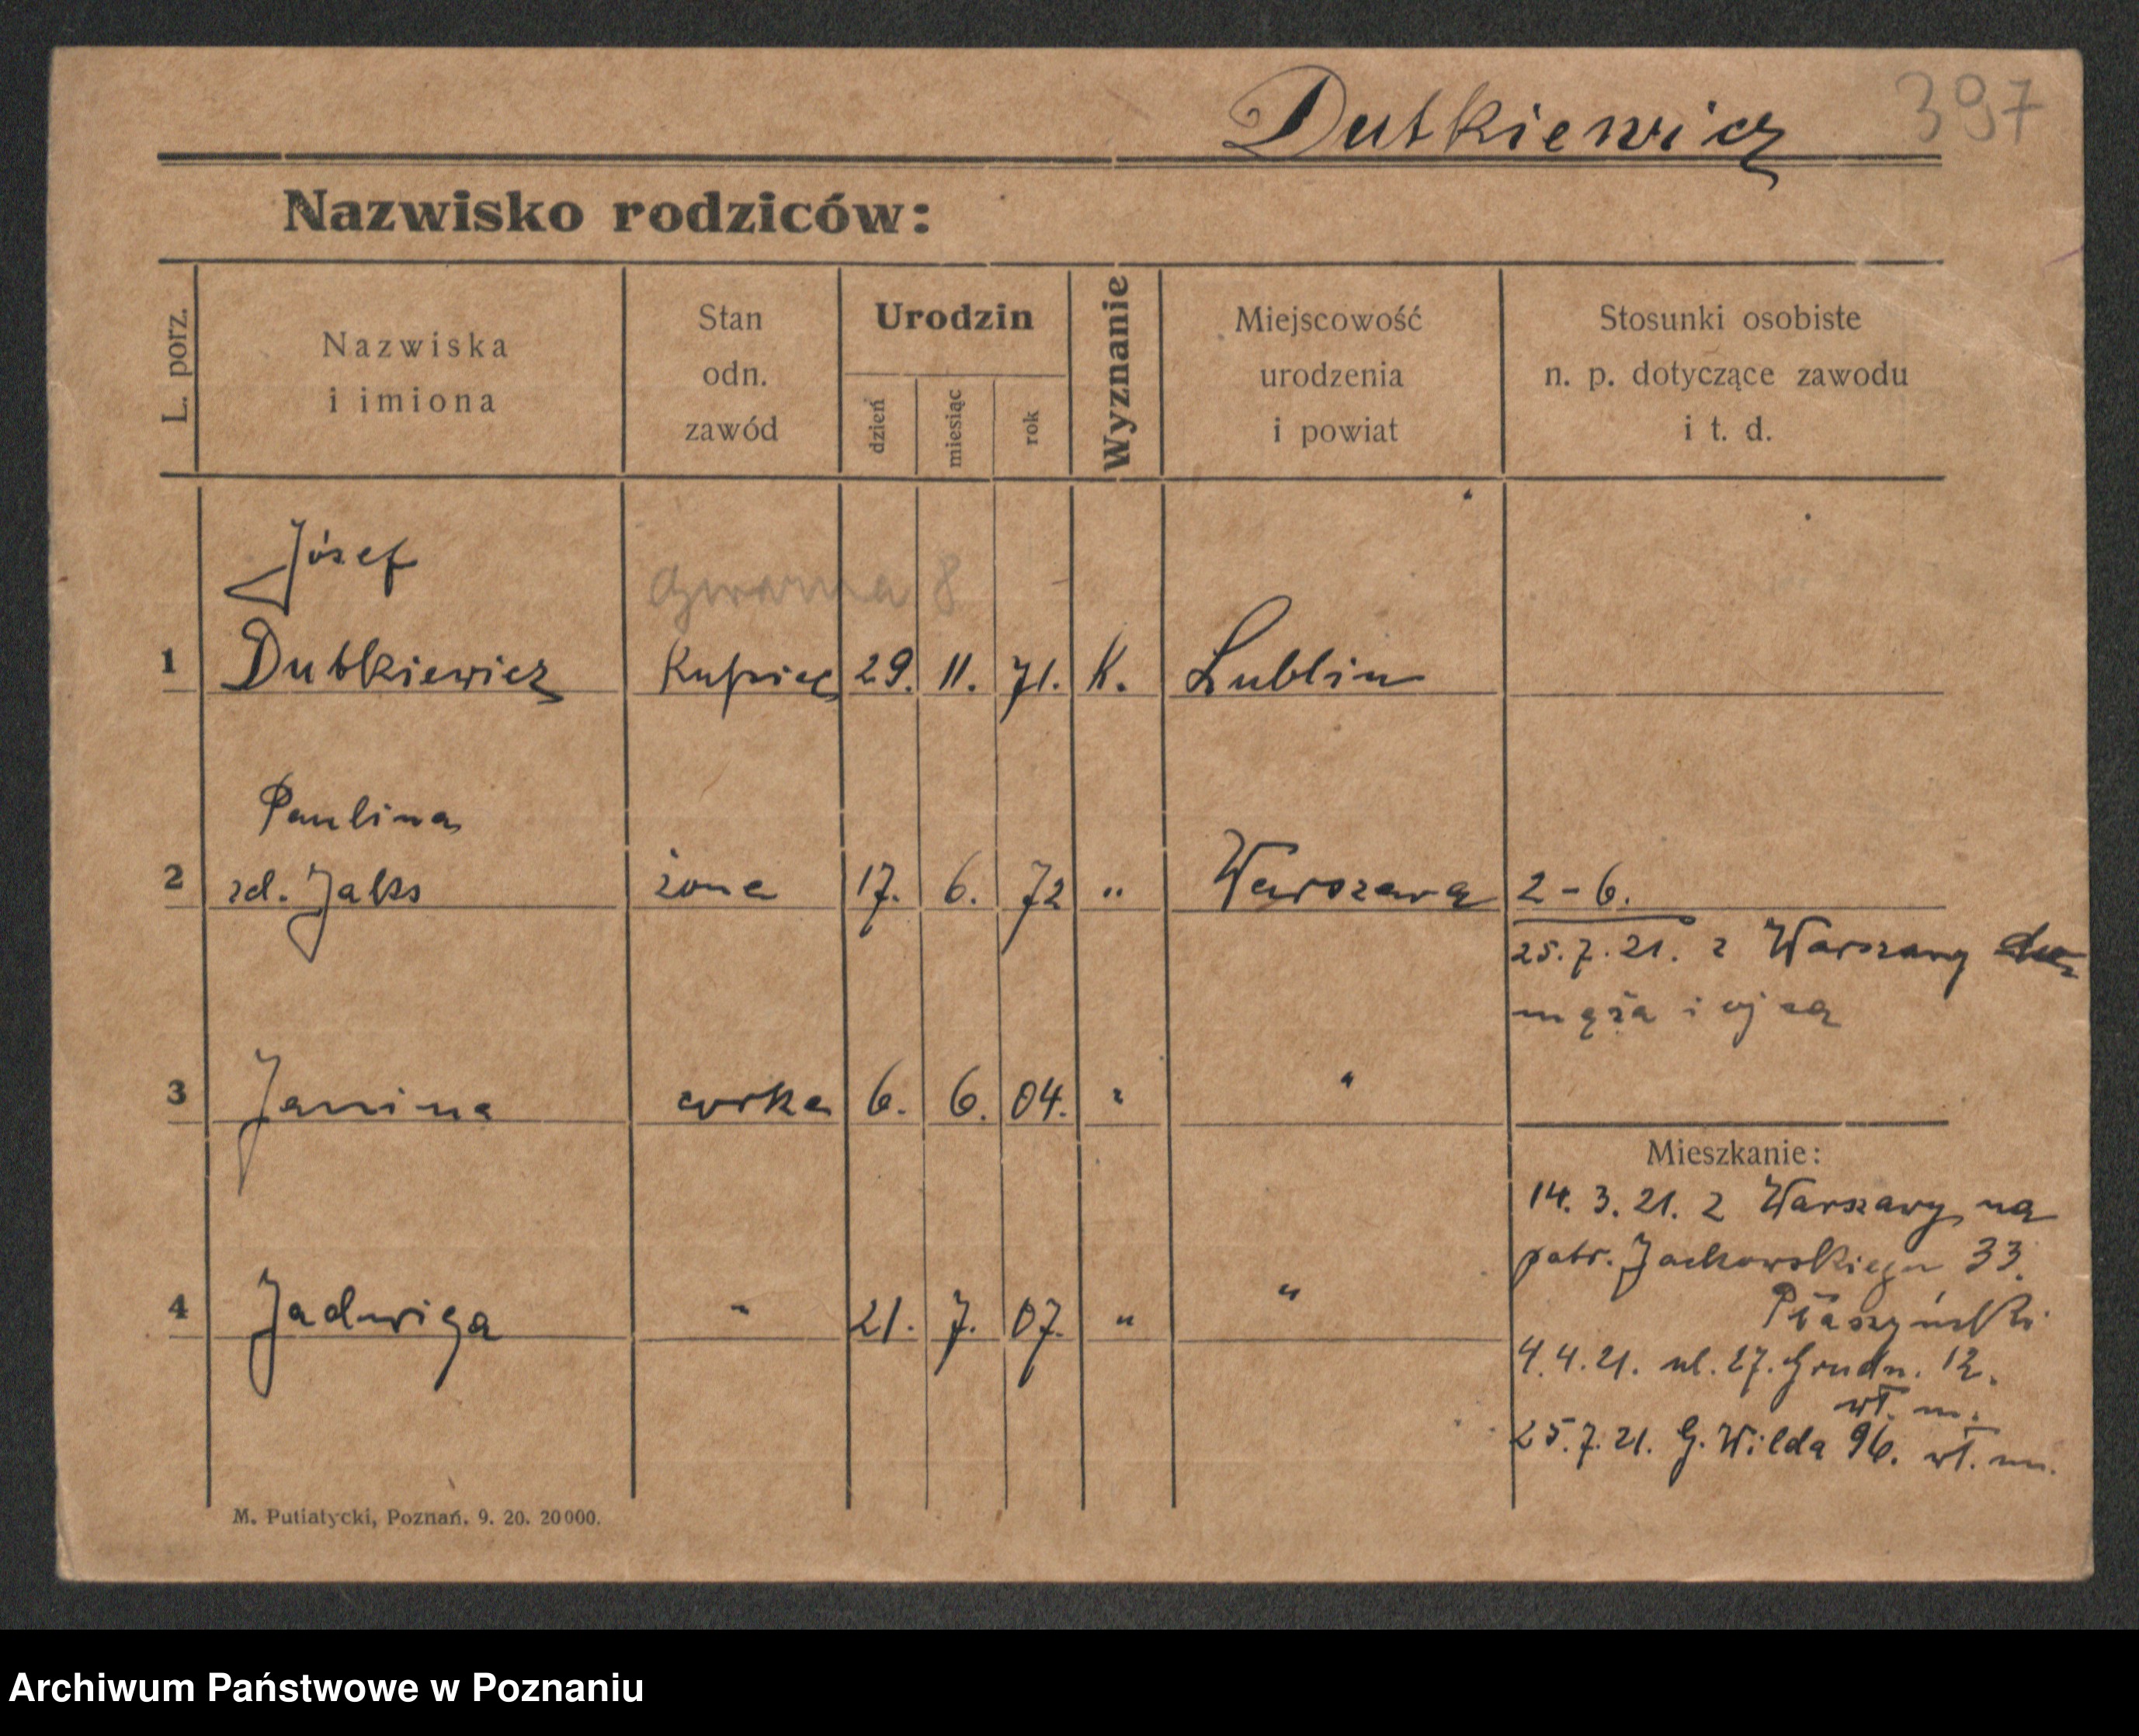 Dutkiewicz 397
Nazwisko rodziców:
L. porz.
Nazwiska
i imiona
Stan
odn.
zawód
Urodzin
dzień
miesiąc
rok
Wyznanie
Miejscowość
urodzenia
i powiat
Stosunki osobiste
n. p. dotyczące zawodu
i t. d.
Józef
Gwarna 8
1 Dutkiewicz Kupiec 29. 11. 71. K. Lublin
Paulina
2 zd. Jaks żona 17. 6. 72 " Warszawa 2-6.
25.7.21. z Warszawy do
męża i ojca
3 Janina corka 6. 6. 04. " "
Mieszkanie:
14. 3. 21. z Warszawy na
patr. Jackowskiego 33.
Płaszyński
4 Jadwiga " 21. 7. 07. " "
4.4.21. ul. 27. Grudn. 12.
wł. m.
25.7.21. G. Wilda 96. wł. m.
M. Putiatycki, Poznań. 9. 20. 20000.
Archiwum Państwowe w Poznaniu